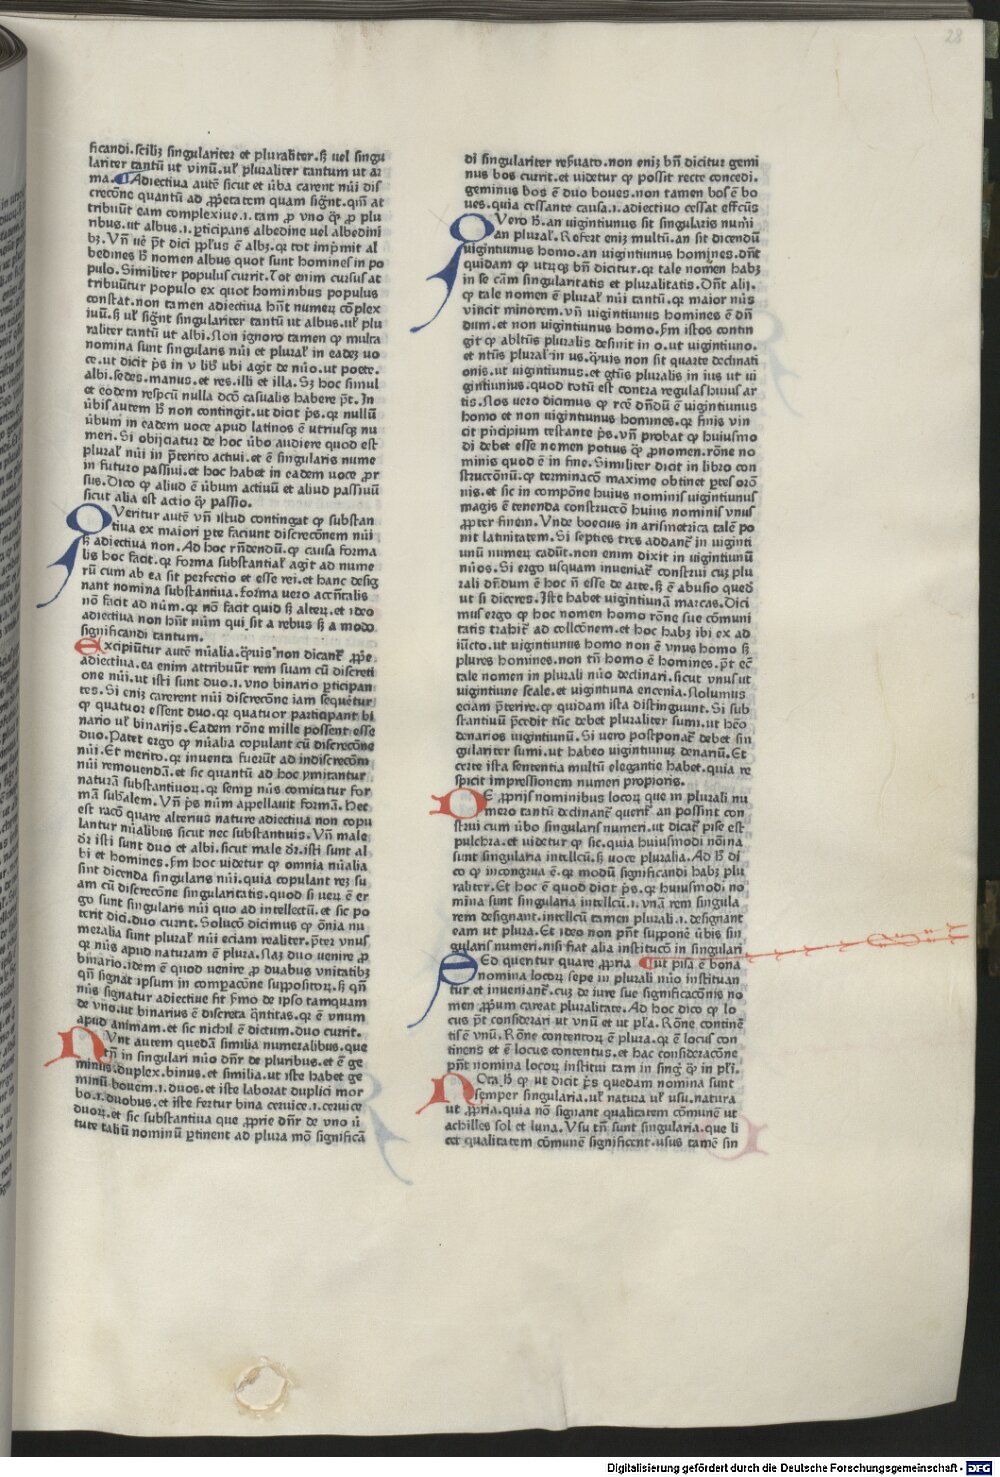 28
ficandi.scilicꝫ singulariter et pluraliter.sꝫ uel singu
lariter tantū ut vinū.ul' pluraliter tantum ut ar
ma. Adiectiua autē sicut et ūba carent nūi dis
crecōne quantū ad ꝓp̄etatem quam sigñt.qm̄ at
tribuūt eam complexiue.i.tam ꝓ vno qꝫ̄ ꝓ plu
ribus.ut albus.i.ꝑticipans albedine uel albedini
bꝫ. Vn̄ uē p̄t dici ppl'us ē albꝫ.qꝛ tot imp̄mit al
bedines ħ nomen albus quot sunt homines in po
pulo. Similiter populus currit. Tot enim cursus at
tribuūtur populo ex quot hominibus populus
constat.non tamen adiectiua hn̄t numeꝝ cōplex
iuū.sꝫ ul' sigñt singulariter tantū ut albus.ul' plu
raliter tantū ut albi. Non ignoro tamen ꝙ multa
nomina sunt singularis nūi et plural' in eadeꝫ uo
ce.ut dicit p̄s in v lib̄ ubi agit de nūo.ut poete.
albi.sedes.manus.et res.illi et illa. Sꝫ hoc simul
et eodem respcū nulla dcō casualis habere p̄t. In
ūbis autem ħ non contingit.ut dicit p̄s.qꝛ nullū
ūbum in eadem uoce apud latinos ē utriusqꝫ nu
meri. Si obijciatur de hoc ūbo audiere quod est
plural' nūi in p̄terito actiui.et ē singularis nume
in futuro passiui.et hoc habet in eadem uoce ꝓr
sus. Dico ꝙ aliud ē ūbum actiuū et aliud passiuū
sicut alia est actio qꝫ̄ passio.
Queritur autē vn̄ istud contingat ꝙ substan
tiua ex maiori ꝑte faciunt discrecōnem nūi
sꝫ adiectiua non. Ad hoc rn̄dendū.ꝙ causa forma
lis hoc facit.qꝛ forma substantial' agit ad nume
rū cum ab ea sit perfectio et esse rei.et hanc desig
nant nomina substantiua. forma uero accn̄talis
nō facit ad nūm.qꝛ nō facit quid sꝫ alteꝝ.et ideo
adiectiua non hn̄t nūm qui sit a rebus sꝫ a modo
significandi tantum.
Excipiūtur autē nūalia.qꝫuis non dicant' ꝓp̄e
adiectiua.ea enim attribuūt rem suam cū discreti
one nūi.ut isti sunt duo.i.vno binario ꝑticipan
tes. Si eniꝫ carerent nūi discrecōne iam sequēꝉtur
ꝙ quatuor essent duo.qꝛ quatuor participant bi
nario ul' binarijs. Eadem rōne mille possent esse
duo. Patet ergo ꝙ nūalia copulant cū discrecōne
nūi. Et merito.qꝛ inuenta fuerūt ad indiscrecōm
nūi remouendā.et sic quantū ad hoc ymitantur
naturā substantiuoꝝ.qꝛ semꝑ nūs comitatur for
mā sub̄alem. Vn̄ p̄s nūm appellauit formā. Hec
est racō quare alterius nature adiectiua non copu
lantur nūalibus sicut nec substantiuis. Vn̄ male
dr̄ isti sunt duo et albi.sicut male dr̄.isti sunt al
bi et homines. fm̄ hoc uidetur ꝙ omnia nūalia
sint dicenda singularis nūi.quia copulant reꝫ su
am cū discrecōne singularitatis.quod si ueꝝ ē er
go sunt singularis nūi quo ad intellectū.et sic po
terit dici.duo currit. Solucō dicimus ꝙ ōnia nu
meralia sunt plural' nūi eciam realiter.p̄ter vnus
qꝛ nūs apud naturam ē plura. Naꝫ duo uenire ꝓ
binario.idem ē quod uenire ꝓ duabus vnitatibꝫ
qn̄ signat ipsum in compacōne suppositoꝝ.sꝫ qn̄
nūs signatur adiectiue fit ſmo de ipso tamquam
de vno.ut binarius ē discreta qn̄titas.qꝛ ē vnum
apud animam.et sic nichil ē dictum.duo currit.
Nunt autem quedā similia numeralibus.que
tn̄ in singulari nūo dn̄r de pluribus.et ē ge
minus.duplex.binus.et similia.ut iste habet ge
minū bouem.i.duos.et iste laborat duplici mor
bo.i.duobus.et iste fertur bina ceruice.i.ceruice
duoꝝ.et sic substantiua que ꝓprie dn̄r de vno ū
tute taliū nominū ꝑtinent ad plura mō significā
di singulariter reſuato.non eniꝫ bn̄ dicitur gemi
nus bos currit.et uidetur ꝙ possit recte concedi.
geminus bos ē duo boues.non tamen bos ē bo
ues.quia cessante causa.i.adiectiuo cessat effcūs
Quero ħ.an uigintiunus sit singularis num̄i
an plural'. Refert eniꝫ multū.an sit dicendū
uigintiunus homo.an uigintiunus homines.dn̄t
quidam ꝙ utrꝫqꝫ bn̄ dicitur.qꝛ tale nomen habꝫ
in se cām singularitatis et pluralitatis. Dn̄t alij.
ꝙ tale nomen ē plural' nūi tantū.qꝛ maior nūs
vincit minorem.vn̄ uigintiunus homines ē dn̄
dum.et non uigintiunus homo. fm̄ istos contin
git ꝙ abltūs pluralis desinit in o.ut uigintiuno.
et ntūs plural' in us.qꝫuis non sit quarte declinati
onis.ut uigintiunus.et gtūs pluralis in ius ut ui
gintiunius.quod totū est contra regulas huius ar
tis. Nos uero dicimus ꝙ rcē dn̄dū ē uigintiunus
homo et non uigintiunus homines.qꝛ finis vin
cit pn̄cipium testante p̄s.vn̄ probat ꝙ huiusmo
di debet esse nomen potius qꝫ̄ ꝓnomen.rōne no
minis quod ē in fine. Similiter dicit in libro con
struccōnū.ꝙ terminacō maxime obtinet ꝑtes orō
nis.et sic in compōne huius nominis uigintiunus
magis ē tenenda construccō huius nominis vnus
ꝓpter finem. Vnde boecius in arismetrica talē po
nit latinitatem. Si septies tres addant' in uiginti
unū numeꝝ cadūt.non enim dixit in uigintiunū
nūos. Si ergo usquam inueniat' construi cuꝫ plu
rali dn̄dum ē hoc n̄ esse de arte.sꝫ ē abusio quedꝫ
ut si diceres. Iste habet uigintiunā marcas. Dici
mus ergo ꝙ hoc nomen homo rōne sue cōmuni
tatis trahit' ad collcōnem.et hoc habꝫ ibi ex ad
iūcto.ut uigintiunus homo non ē vnus homo sꝫ
plures homines.non tn̄ homo ē homines.p̄t ec̄
tale nomen in plurali nūo declinari.sicut vnus ut
uigintiune scale.et uigintiuna encenia. Nolumus
eciam p̄terire.ꝙ quidam ista distinguunt. Si sub
stantiuū p̄cedit tūc debet pluraliter sumi.ut hēo
denarios uigintiunū. Si uero postponat' debet sin
gulariter sumi.ut habeo uigintiunuꝫ denariū. Et
certe ista sententia multū elegantie habet.quia re
spicit impressionem numeri propioris.
De ꝓprijs nominibus locoꝝ que in plurali nu
mero tantū declinant' querit' an possint con
strui cum ūbo singularis numeri.ut dicat' pise est
pulchra.et uidetur ꝙ sic.quia huiusmodi nōina
sunt singularia intellcū.sꝫ uoce pluralia. Ad ħ di
co ꝙ incongrua ē.qꝛ modū significandi habꝫ plu
raliter. Et hoc ē quod dicit p̄s.qꝛ huiusmodi no
mina sunt singularia intellcū.i.vnā rem singula
rem designant.intellcū tamen plurali.i.designant
eam ut plura. Et ideo non pn̄t supponē ūbis sin
gularis numeri.nisi fiat alia institucō in singulari
Sed querntur quare ꝓpria ut pisa ē bona
nomina locoꝝ sepe in plurali nūo instituan
tur et inueniant'.cuꝫ de iure sue significacōnis no
men ꝓpum careat pluralitate. Ad hoc dico ꝙ lo
cus p̄t considerari ut vnū et ut pl'a. Rōne continē
tis ē vnū. Rōne contentoꝝ ē plura.qꝛ ē locus con
tinens et ē locus contentus.et hac consideracōne
pn̄t nomina locoꝝ institui tam in sing' qꝫ̄ in pl'i.
Nota ħ ꝙ ut dicit p̄s quedam nomina sunt
semper singularia.ul' natura ul' usu.natura
ut ꝓpria.quia nō signant qualitatem cōmunē ut
achilles sol et luna. Vsu tn̄ sunt singularia.que li
cet qualitatem cōmunē significent.usus tamē sin
Digitalisierung gefördert durch die Deutsche Forschungsgemeinschaft - DFG